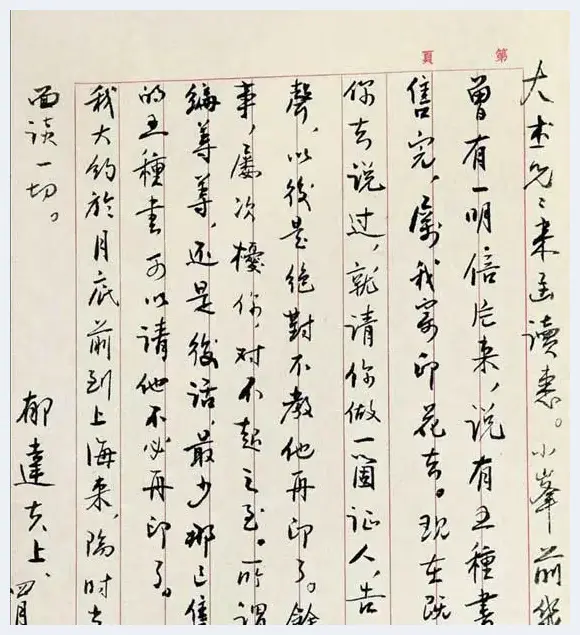 第 頁
大杰兄：来函读悉。小峯前幾
曾有一明信片来，说有五種書
售完，属我寄印花去。现在既
你去说过，就请你做一箇证人，告
聲，以後是絶對不教他再印了。餘
事，屡次擾你，对不起之至。所谓
编等等，还是後话，最少那已售
的五種書可以请他不必再印了。
我大约於月底前到上海来，临时当
面谈一切。
郁達夫上，四月